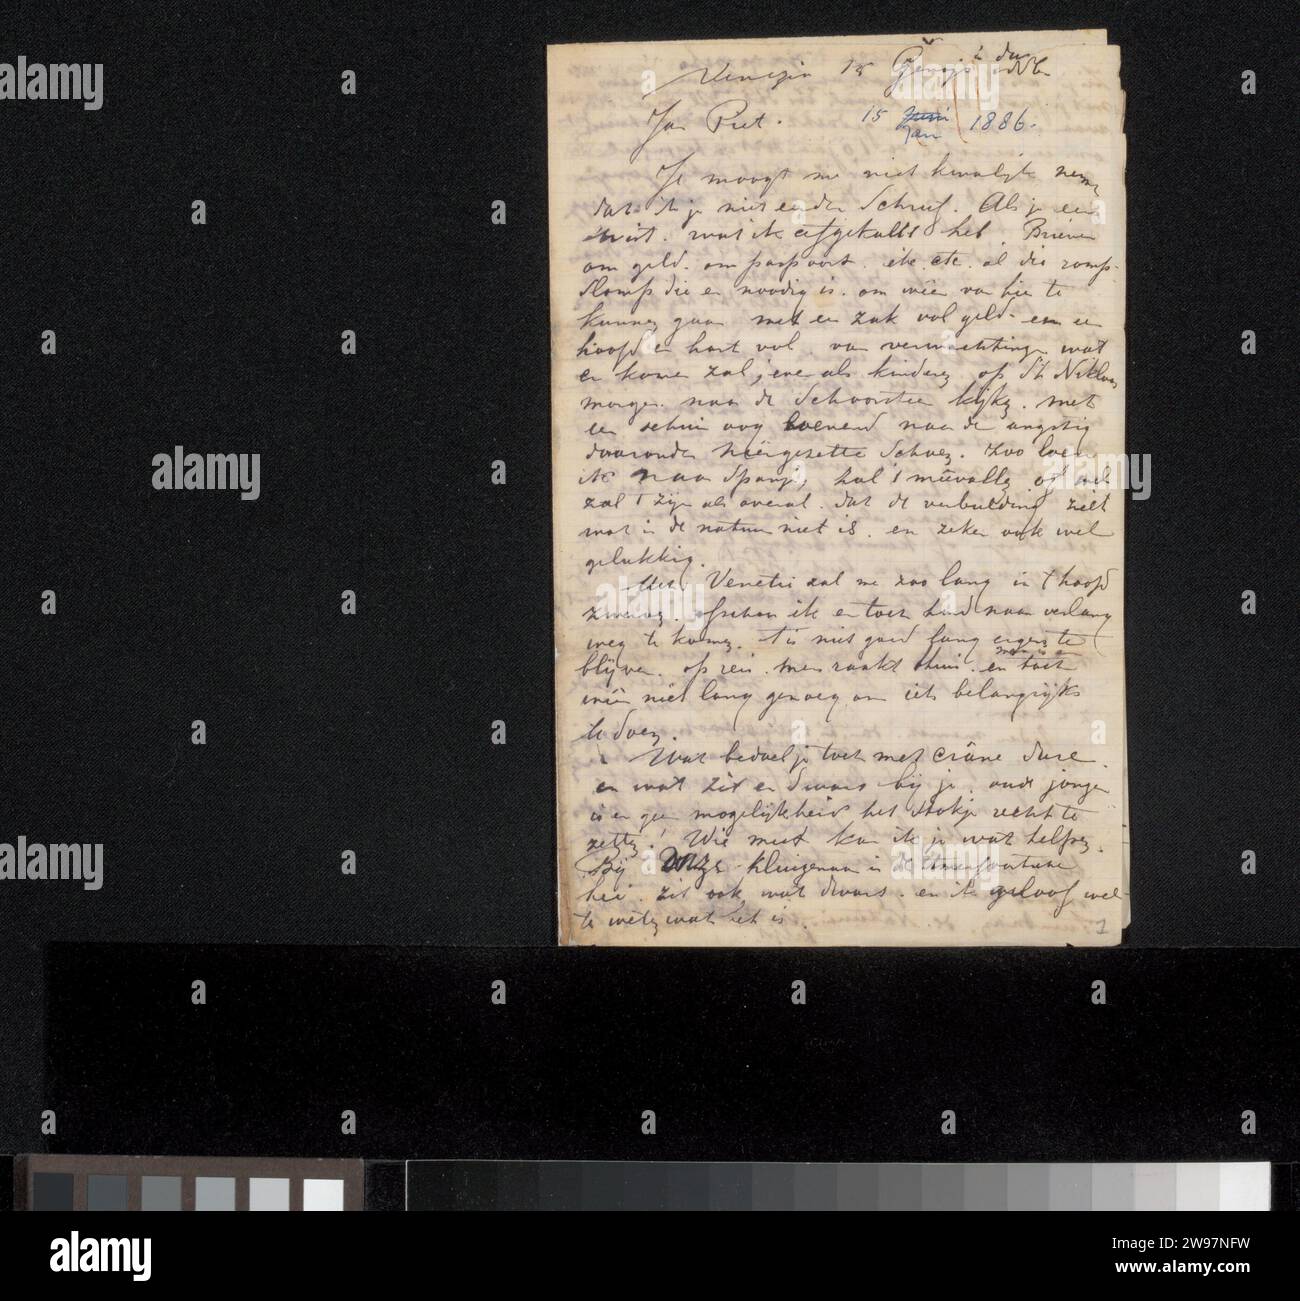 Venezia 15
Ja Piet. 15 Juni Jan 1886.
Je moogt me niet kwalijk neme
dat ik je niet eerder schreef. Als je eens
wist. wat ik afgekalld heb. Brieven
om geld. om paspoort. etc. etc. al die romp-
slomp die er noodig is. om wéér van hier te
kunnen gaan met een zak vol geld en een
hoofd en hart vol van verwachtingen wat
er komen zal, even als kinderen op St Niklaas
morgen naar de Schoorsteen kijken. met
een schuin oog loerend naar de angstig
daaronder neêrgezette Schoen. zoo loer
ik naar Spanje, zal 't meêvallen of
zal 't zijn als overal. dat de verbeelding ziet
wat in de natuur niet is. en zeker ook wel
gelukkig.
Met Venetië zal me zoo lang in 't hoofd
ofschoon ik er toch hard naar verlang
weg te komen. 't is niet goed lang ergens te
blijven. op reis. men raakt thuis. en toch
men is er
wéér niet lang genoeg om iets belangrijks
te doen.
Wat bedoel je toch met crâne dure.
en wat zit er dwars bij je. oude jongen
is er geen mogelijkheid het stokje recht te
zetten! Wie weet kan ik je wat helpen.
Bij onze kluizenaar in de
hei. zit ook wat dwars. en ik geloof wel
te weten wat het is.
1
alamy
Image ID: 2W97NFW
www.alamy.com